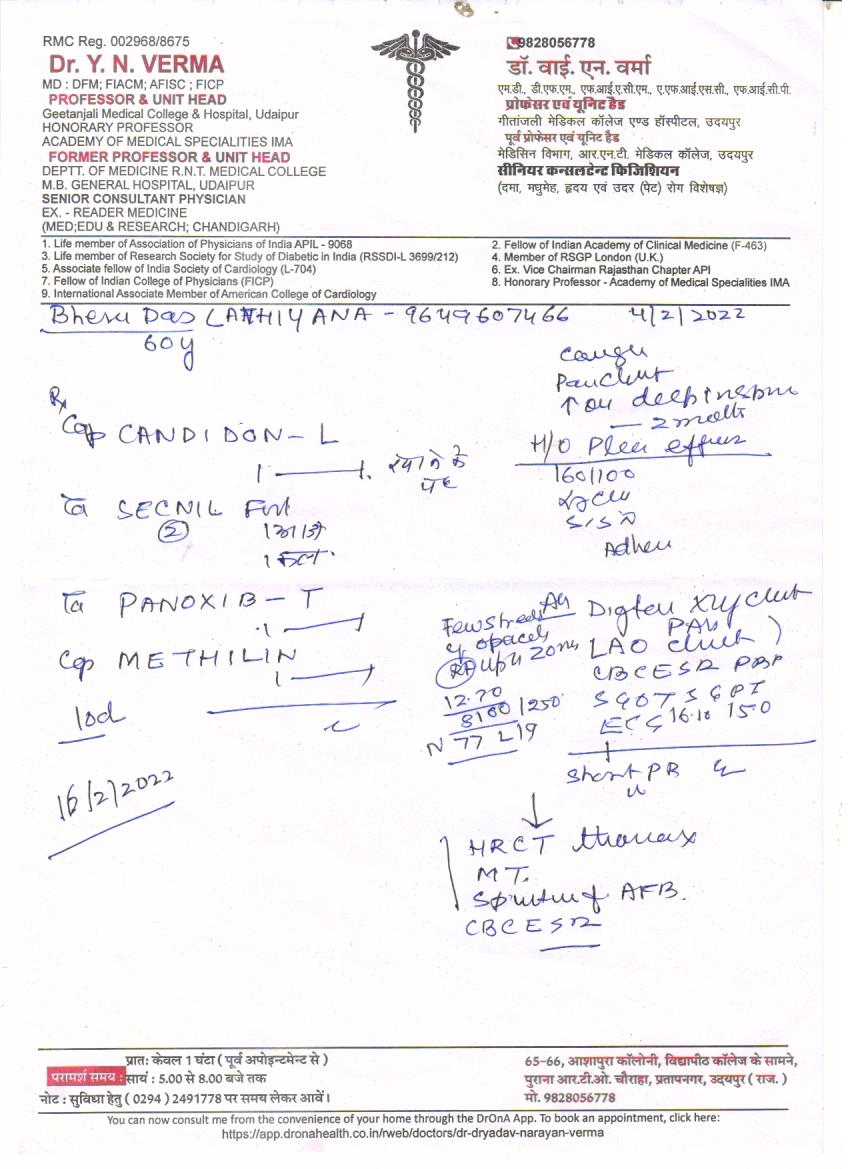 RMC Reg. 002968/8675
Dr. Y. N. VERMA
MD : DFM; FIACM; AFISC ; FICP
PROFESSOR & UNIT HEAD
Geetanjali Medical College & Hospital, Udaipur
HONORARY PROFESSOR
ACADEMY OF MEDICAL SPECIALITIES IMA
FORMER PROFESSOR & UNIT HEAD
DEPTT. OF MEDICINE R.N.T. MEDICAL COLLEGE
M.B. GENERAL HOSPITAL, UDAIPUR
SENIOR CONSULTANT PHYSICIAN
EX. - READER MEDICINE
(MED;EDU & RESEARCH; CHANDIGARH)
9828056778
डॉ. वाई. एन. वर्मा
एम.डी., डी.एफ.एम., एफ.आई.ए.सी.एम., ए.एफ.आई.एस.सी., एफ.आई.सी.पी.
प्रोफेसर एवं यूनिट हैड
गीतांजली मेडिकल कॉलेज एण्ड हॉस्पीटल, उदयपुर
पूर्व प्रोफेसर एवं यूनिट हैड
मेडिसिन विभाग, आर.एन.टी. मेडिकल कॉलेज, उदयपुर
सीनियर कन्सलटेन्ट फिजिशियन
(दमा, मधुमेह, हृदय एवं उदर (पेट) रोग विशेषज्ञ)
1. Life member of Association of Physicians of India APIL - 9068
2. Fellow of Indian Academy of Clinical Medicine (F-463)
3. Life member of Research Society for Study of Diabetic in India (RSSDI-L 3699/212)
4. Member of RSGP London (U.K.)
5. Associate fellow of India Society of Cardiology (L-704)
6. Ex. Vice Chairman Rajasthan Chapter API
7. Fellow of Indian College of Physicians (FICP)
8. Honorary Professor - Academy of Medical Specialities IMA
9. International Associate Member of American College of Cardiology
Bheru Das LATHIYANA - 9649607466 4/2/2022
60y
Cough
↑ on deep inspn
- 2 months
H/O
160/100
Rx
Cap CANDIDON-L
1 1
SECNIL Fort
(2)
PANOXIB-T
1
Cap METHILIN
1
10d
16/2/2022
Few
opaces
Rt up zones
12.70
8100 1250
N 77 L 19
Adv Digital Xray chest
PAV
LAO chest
CBC ESR PBF
SGOT SGPT
ECG 16.10 150
Short PR
↓
HRCT thorax
MT.
Sputum f AFB.
CBC ESR
परामर्श समय : प्रातः केवल 1 घंटा ( पूर्व अपोइन्टमेन्ट से )
सायं : 5.00 से 8.00 बजे तक
नोट : सुविधा हेतु ( 0294 ) 2491778 पर समय लेकर आवें।
65-66, आशापुरा कॉलोनी, विद्यापीठ कॉलेज के सामने,
पुराना आर.टी.ओ. चौराहा, प्रतापनगर, उदयपुर ( राज. )
मो. 9828056778
You can now consult me from the convenience of your home through the DrOnA App. To book an appointment, click here:
https://app.dronahealth.co.in/rweb/doctors/dr-dryadav-narayan-verma